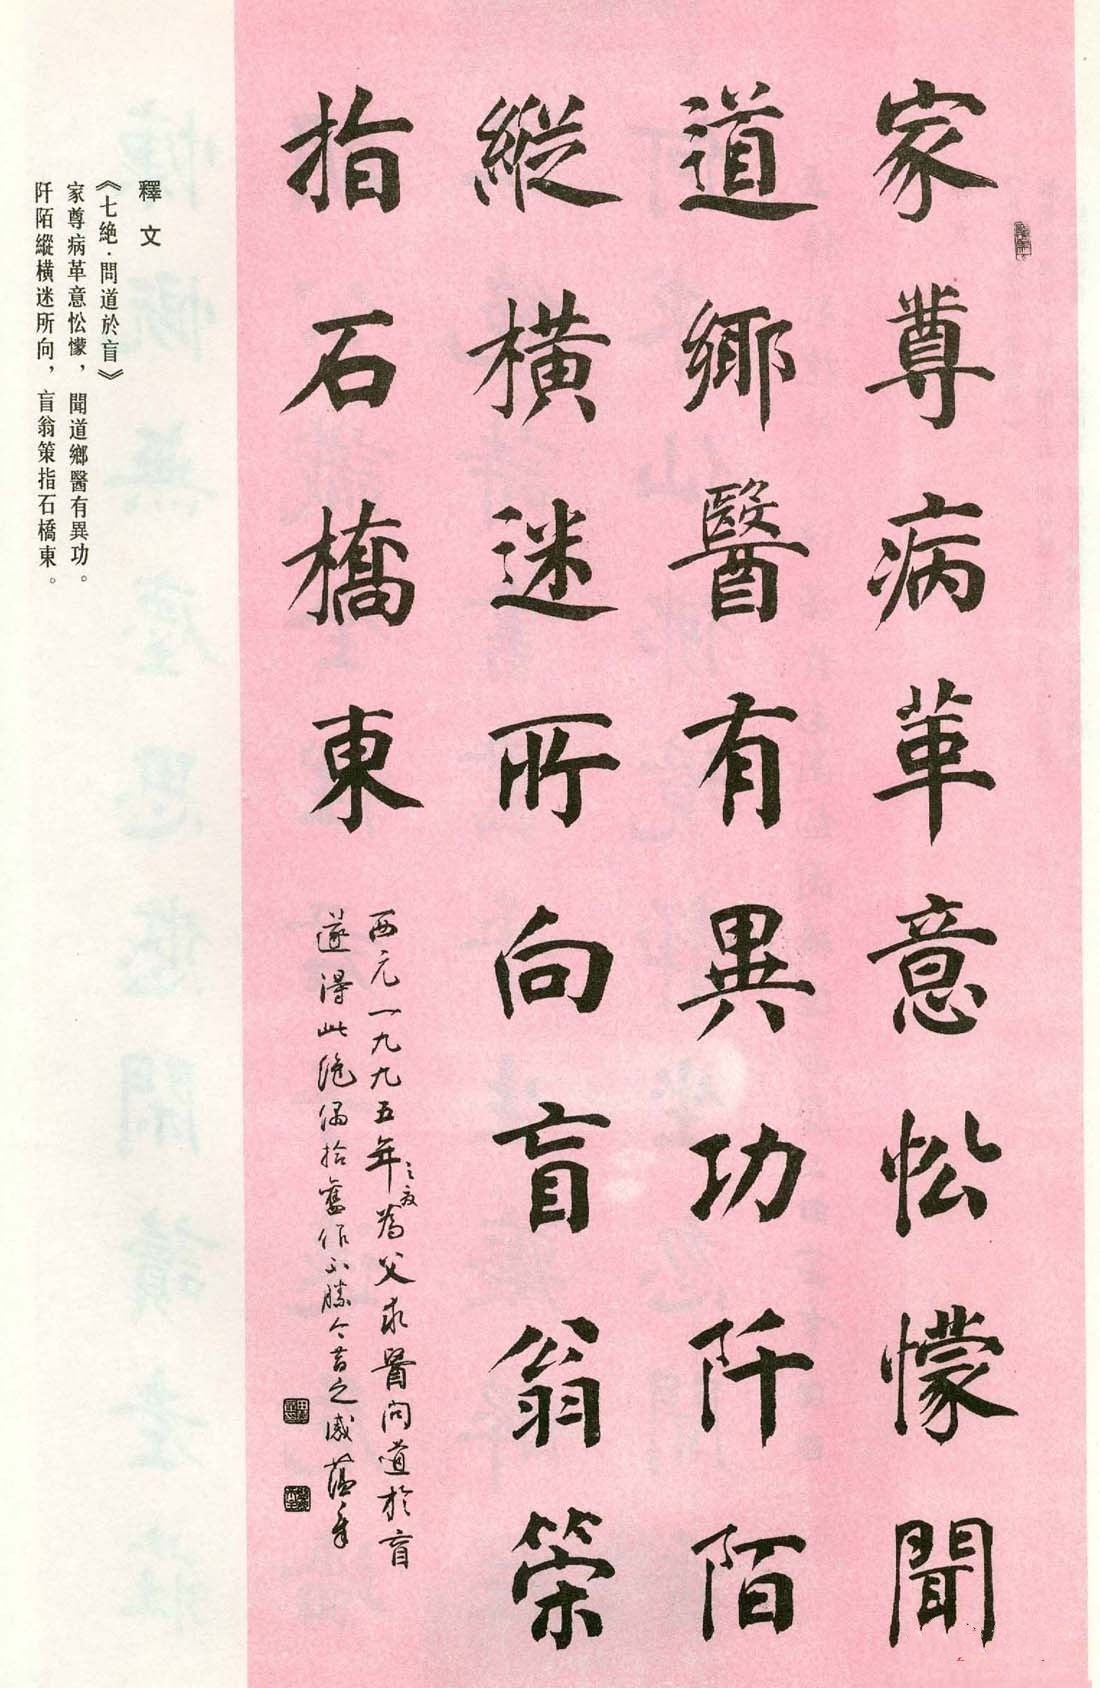 家尊病革意忪懞聞
道鄉醫有異功阡陌
縱橫迷所向盲翁策
指石橋東
西元一九九五年之夜為父求醫問道於盲
遂得此絶偶拾舊作不勝今昔之感
釋文
《七絶·問道於盲》
家尊病革意忪懞，聞道鄉醫有異功。
阡陌縱橫迷所向，盲翁策指石橋東。